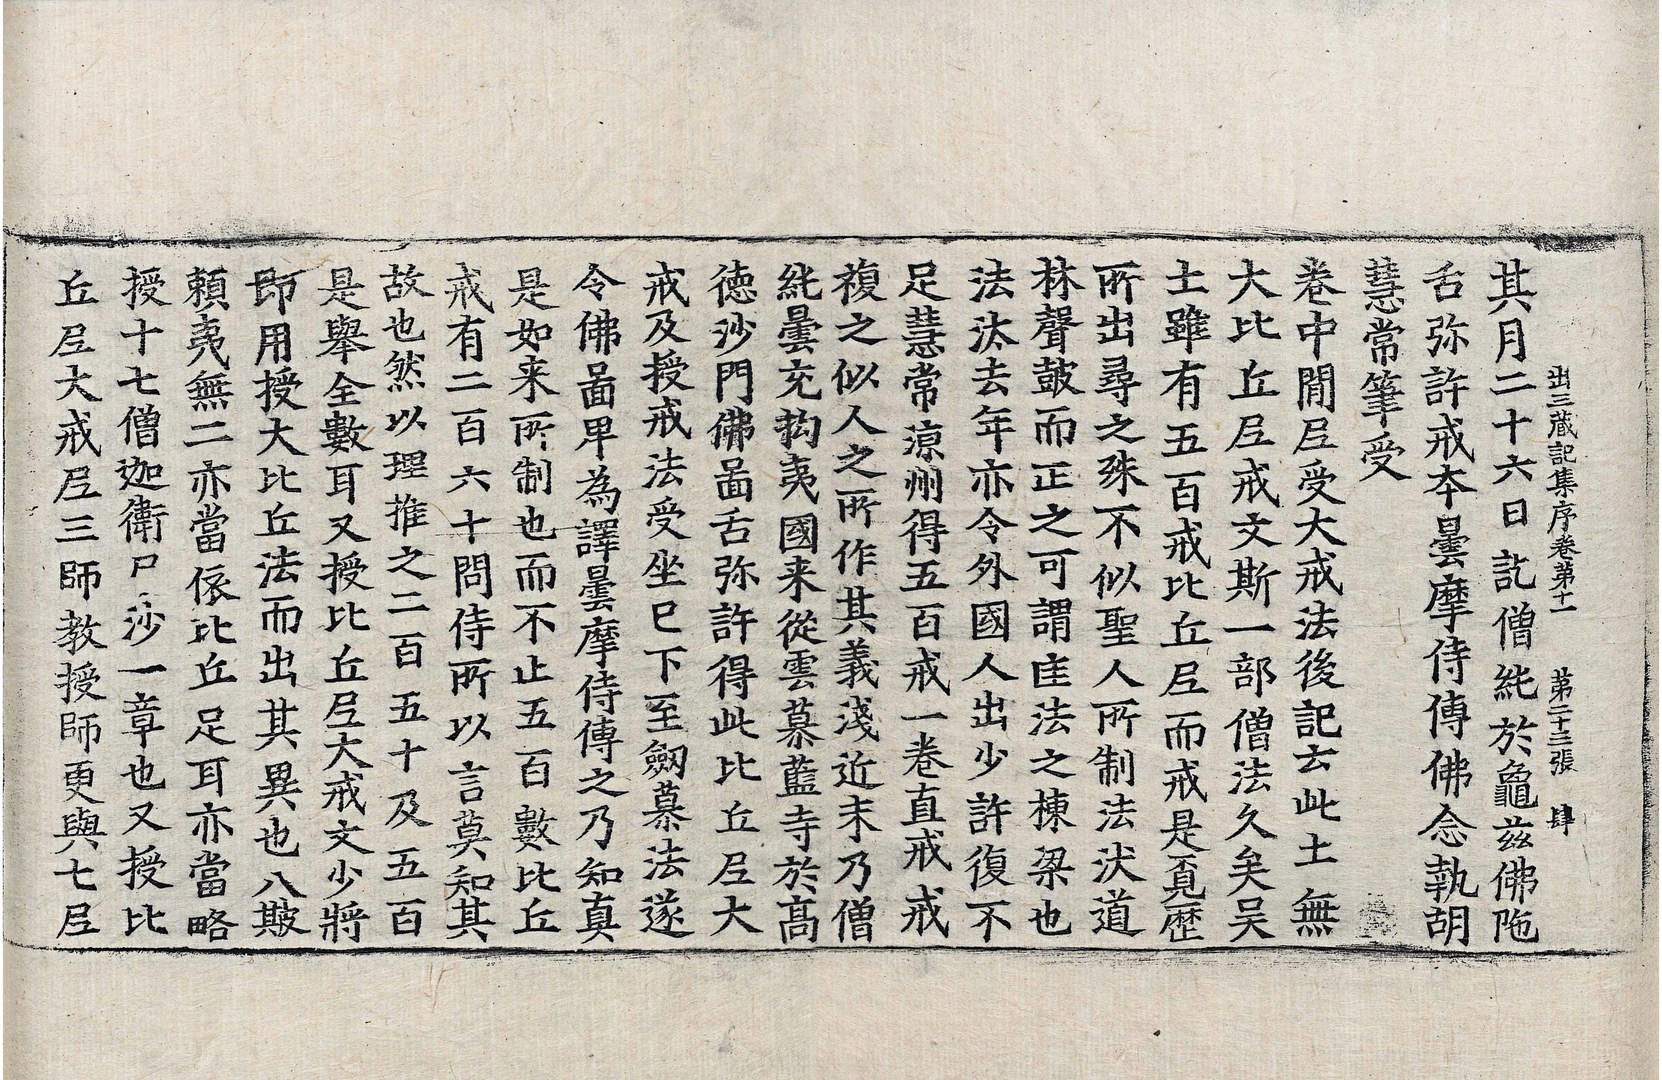 出三藏記集序卷第十一 第二十三張 肆
其月二十六日訖僧純於龜茲佛陁
舌弥許戒夲曇摩侍傳佛念執胡
慧常筆受
卷中間𡰱受大戒法後記云此土無
大比丘𡰱戒文斯一部僧法久矣吴
土雖有五百戒比丘𡰱而戒是覔歷
所出尋之殊不似聖人所制法汰道
林聲鼓而正之可謂匡法之棟梁也
法汰去年亦令外國人出少許復不
足慧常涼州得五百戒一卷直戒戒
複之似人之所作其義淺近末乃僧
純曇充拘夷國来從雲慕藍寺於髙
德沙門佛啚舌弥許得此比丘𡰱大
戒及授戒法受坐已下至劒慕法遂
令佛啚𤰞為譯曇摩侍傳之乃知真
是如来所制也而不止五百數比丘
戒有二百六十問侍所以言莫知其
故也然以理推之二百五十及五百
是舉全數耳又授比丘𡰱大戒文少將
即用授大比丘法而出其異也八䫂
賴夷無二亦當依比丘足耳亦當略
授十七僧迦衛尸沙一章也又授比
丘𡰱大戒𡰱三師教授師更與七𡰱